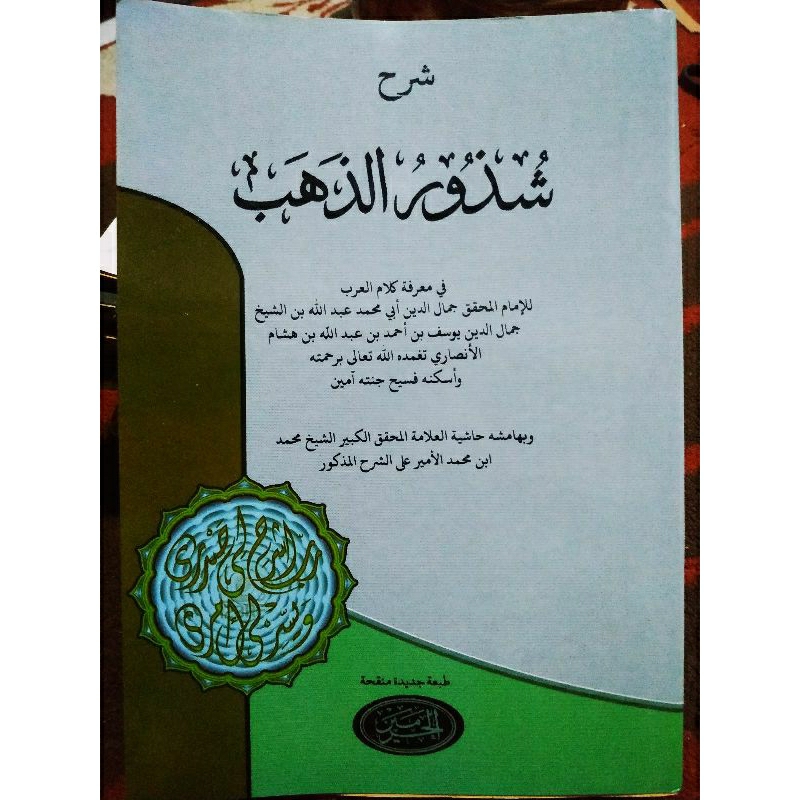 شرح
شُذوُرُ الذَهَبَ
في معرفة كلام العرب
للإمام المحقق جمال الدين أبي محمد عبد الله بن الشيخ
جمال الدين يوسف بن أحمد بن عبد الله بن هشام
الأنصاري تغمده الله تعالى برحمته
وأسكنه فسيح جنته آمين
وبهامشه حاشية العلامة المحقق الكبير الشيخ محمد
ابن محمد الأمير على الشرح المذكور
رب اشرح لي صدري
ويسر لي أمري
طبعة جديدة منقحة
الحرمين